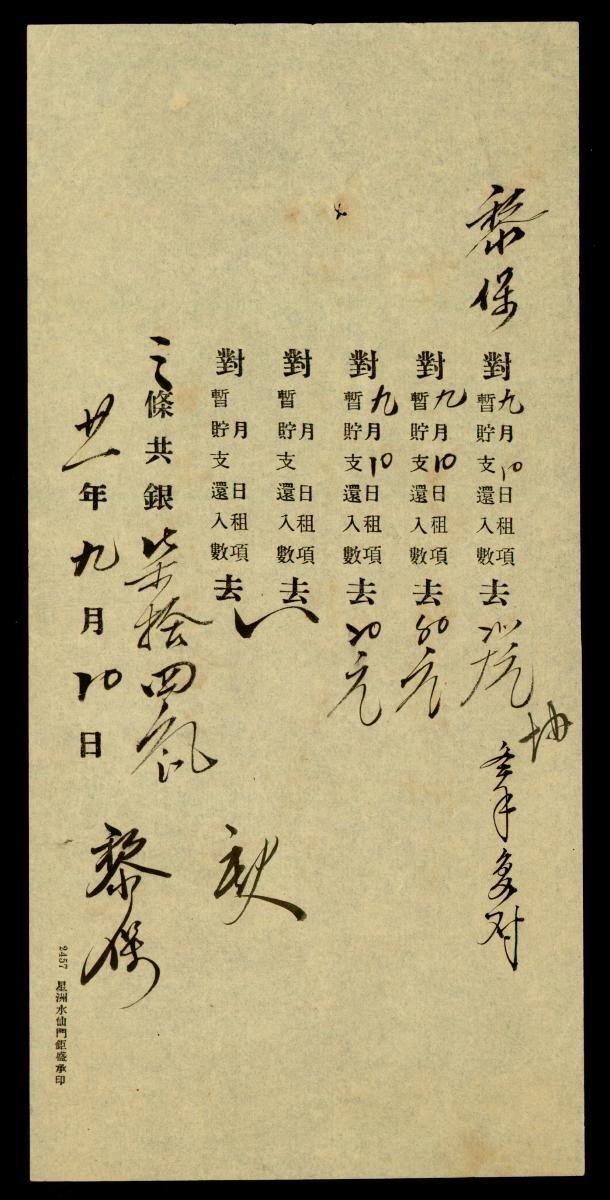 黎保
對九月10日租項去
暫貯支還入數
對九月10日租項去60元
暫貯支還入數
對九月10日租項去20元
暫貯支還入數
對 月 日租項去
暫貯支還入數
對 月 日租項去
暫貯支還入數
條共銀柒拾四元
廿一年九月10日
黎保
2457 星洲水仙門鉅盛承印